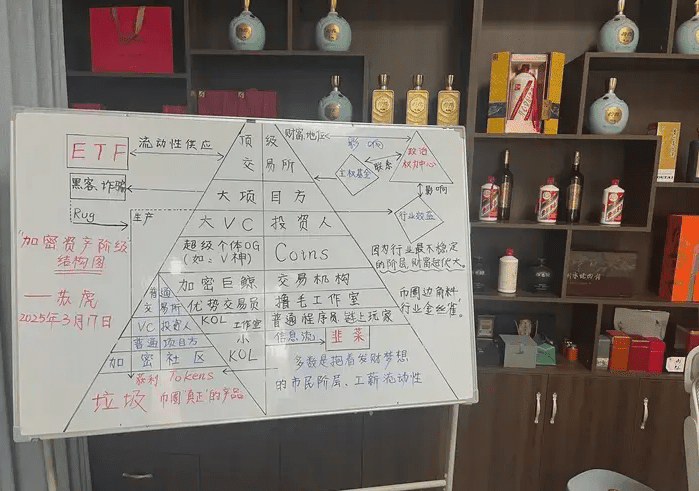 ETF
流动性供应
顶级
交易所
财富,地位
影响
政治
权力中心
主权基金
联系
影响
行业效益
黑客,诈骗
Rug
生产
大项目方
大VC 投资人
超级个体OG
(如:V神)
Coins
加密巨鲸 交易机构
普通
交易所
优势交易员 撸毛工作室
VC投资人
KOL 工作室
普通程序员,链上玩家
普通项目方
小
KOL
信息流
韭菜
加密社区
获利 Tokens
垃圾 币圈"真正"的产品
多数是抱着发财梦想
的市民阶层、工薪流动性
因为行业最不稳定
的阶层,财富每代大。
币圈边角料,
行业金丝雀。
"加密资产阶级
结构图"
——苏虎
2025年3月17日